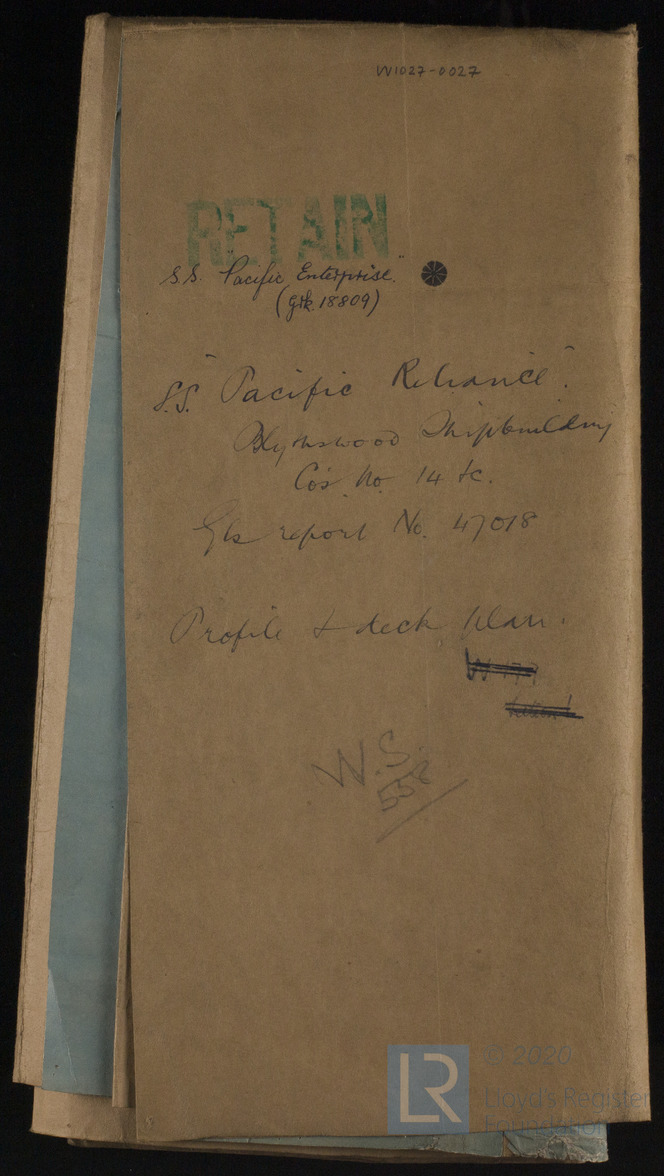 W1027-0027
RETAIN
S.S. "Pacific Enterprise."
(Grk. 18809)
S.S. "Pacific Reliance".
Blythswood Shipbuilding
Co's. No. 14 &c.
Gls report No. 47018
Profile & deck plan.
W.S.
558
LR
© 2020
Lloyd's Register
Foundation